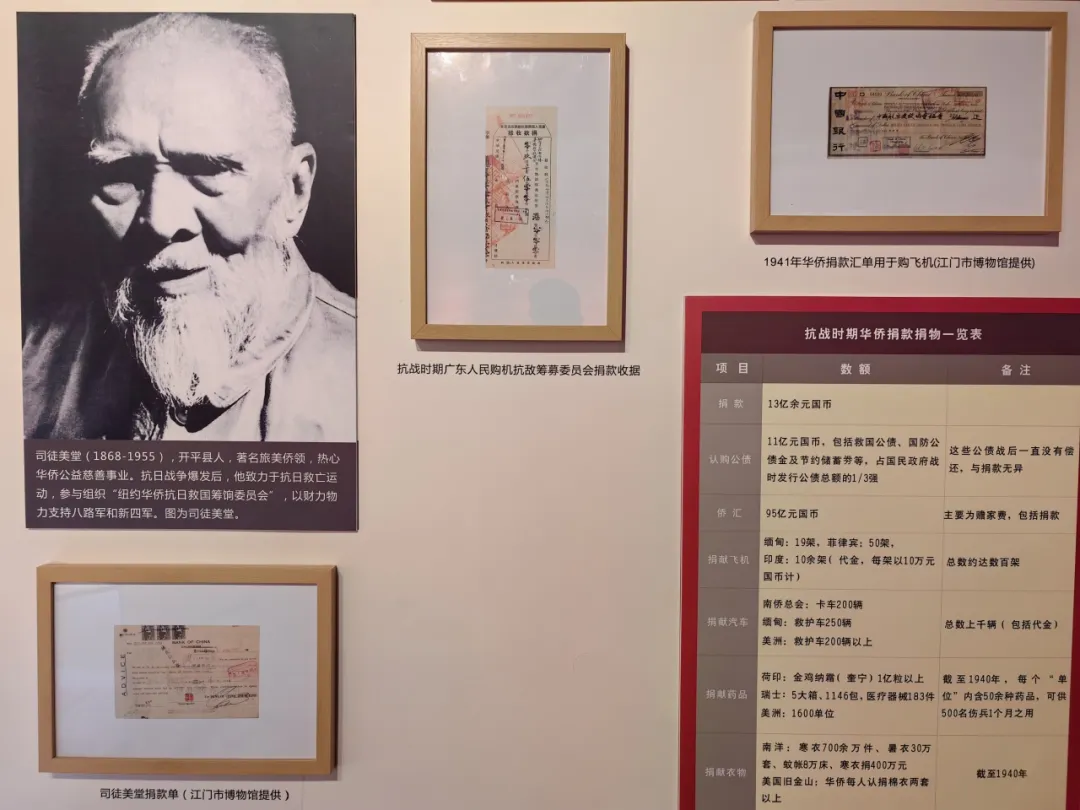 司徒美堂（1868-1955），开平县人，著名旅美侨领，热心
华侨公益慈善事业。抗日战争爆发后，他致力于抗日救亡运
动，参与组织“纽约华侨抗日救国筹饷委员会”，以财力物
力支持八路军和新四军。图为司徒美堂。
ADVICE
BANK OF CHINA
司徒美堂捐款单（江门市博物馆提供）
抗战时期广东人民购机抗敌筹募委员会捐款收据
中國銀行
Bank of China
1941年华侨捐款汇单用于购飞机(江门市博物馆提供)
抗战时期华侨捐款捐物一览表
项 目 数 额 备 注
捐 款 13亿余元国币
认购公债 11亿元国币，包括救国公债、国防公
债金及节约储蓄劵等，占国民政府战
时发行公债总额的1/3强
这些公债战后一直没有偿
还，与捐款无异
侨 汇 95亿元国币 主要为赡家费，包括捐款
捐献飞机 缅甸：19架，菲律宾：50架，
印度：10余架（代金，每架以10万元
国币计）
总数约达数百架
捐献汽车 南侨总会：卡车200辆
缅甸：救护车250辆
美洲：救护车200辆以上
总数上千辆（包括代金）
捐献药品 荷印：金鸡纳霜（奎宁）1亿粒以上
瑞士：5大箱、1146包，医疗器械183件
美洲：1600单位
截至1940年，每个“单
位”内含50余种药品，可供
500名伤兵1个月之用
捐献衣物 南洋：寒衣700余万件、暑衣30万
套、蚊帐8万床、寒衣捐400万元
美国旧金山：华侨每人认捐棉衣两套
以上
截至1940年